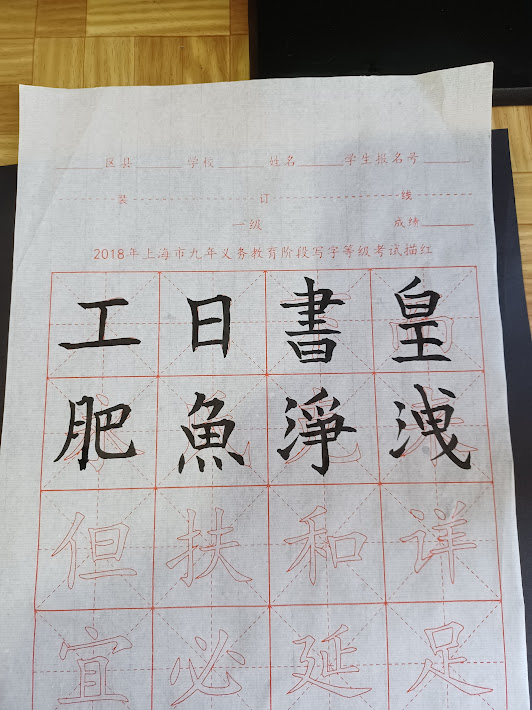 区县 学校 姓名 学生报名号
装 订 线
一级 成绩
2018年上海市九年义务教育阶段写字等级考试描红
工日書皇
肥魚淨洩
但扶和详
宜必延足